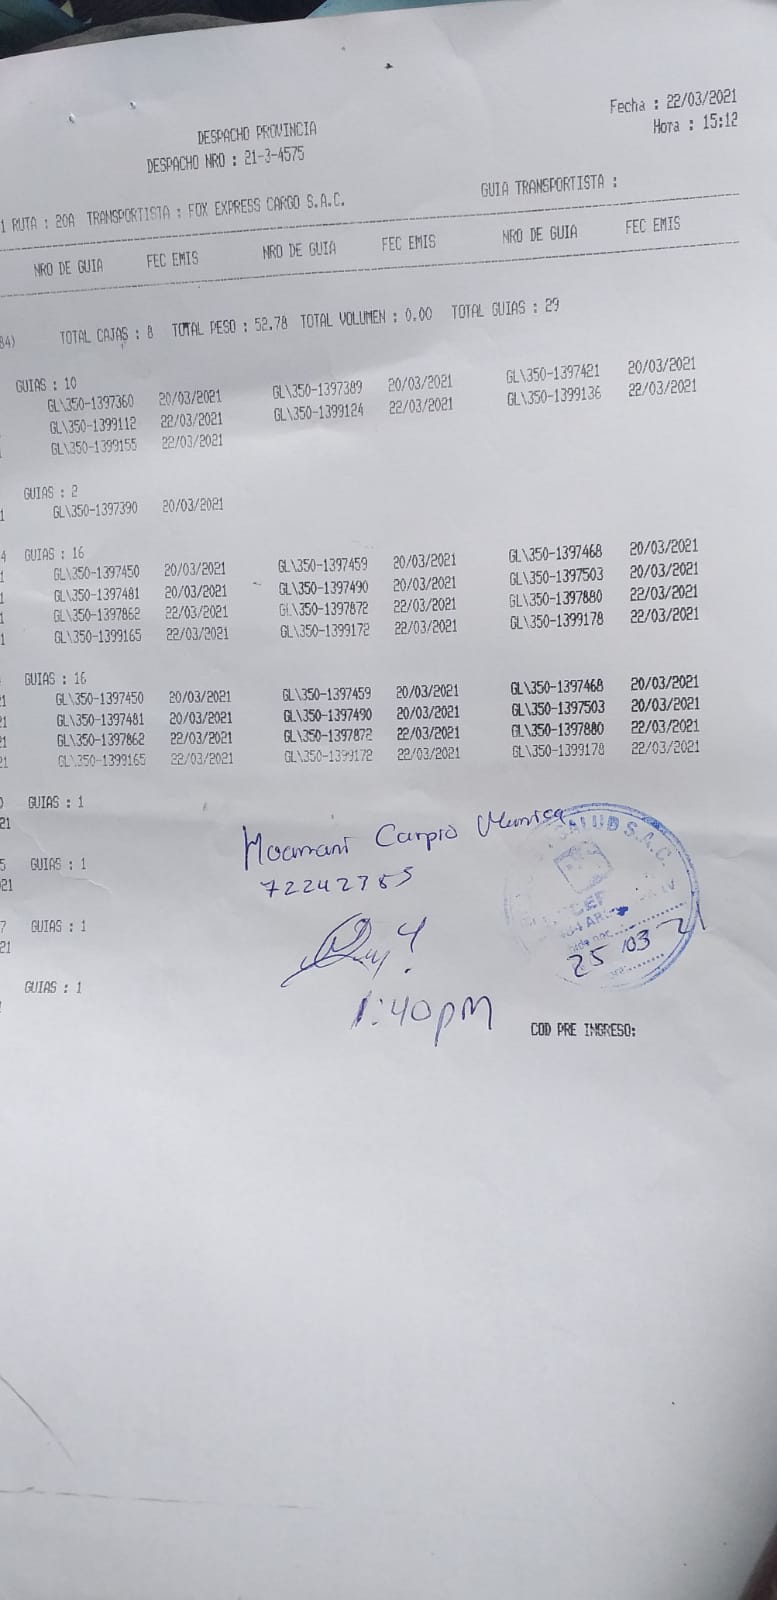 Fecha : 22/03/2021
Hora : 15:12
DESPACHO PROVINCIA
DESPACHO NRO : 21-3-4575
1 RUTA : 20A TRANSPORTISTA : FOX EXPRESS CARGO S.A.C. GUIA TRANSPORTISTA :
NRO DE GUIA FEC EMIS NRO DE GUIA FEC EMIS NRO DE GUIA FEC EMIS
84) TOTAL CAJAS : 8 TOTAL PESO : 52.78 TOTAL VOLUMEN : 0.00 TOTAL GUIAS : 29
GUIAS : 10
GL\350-1397360 20/03/2021 GL\350-1397389 20/03/2021 GL\350-1397421 20/03/2021
GL\350-1399112 22/03/2021 GL\350-1399124 22/03/2021 GL\350-1399136 22/03/2021
GL\350-1399155 22/03/2021
GUIAS : 2
1 GL\350-1397390 20/03/2021
4 GUIAS : 16
1 GL\350-1397450 20/03/2021 GL\350-1397459 20/03/2021 GL\350-1397468 20/03/2021
1 GL\350-1397481 20/03/2021 GL\350-1397490 20/03/2021 GL\350-1397503 20/03/2021
1 GL\350-1397862 22/03/2021 GL\350-1397872 22/03/2021 GL\350-1397880 22/03/2021
1 GL\350-1399165 22/03/2021 GL\350-1399172 22/03/2021 GL\350-1399178 22/03/2021
GUIAS : 16
21 GL\350-1397450 20/03/2021 GL\350-1397459 20/03/2021 GL\350-1397468 20/03/2021
21 GL\350-1397481 20/03/2021 GL\350-1397490 20/03/2021 GL\350-1397503 20/03/2021
21 GL\350-1397862 22/03/2021 GL\350-1397872 22/03/2021 GL\350-1397880 22/03/2021
21 GL\350-1399165 22/03/2021 GL\350-1399172 22/03/2021 GL\350-1399178 22/03/2021
GUIAS : 1
21
5 GUIAS : 1
021
7 GUIAS : 1
21
GUIAS : 1
Carpio
72242785
SALUD S.A.C.
25 03 21
1:40pm
COD PRE INGRESO: